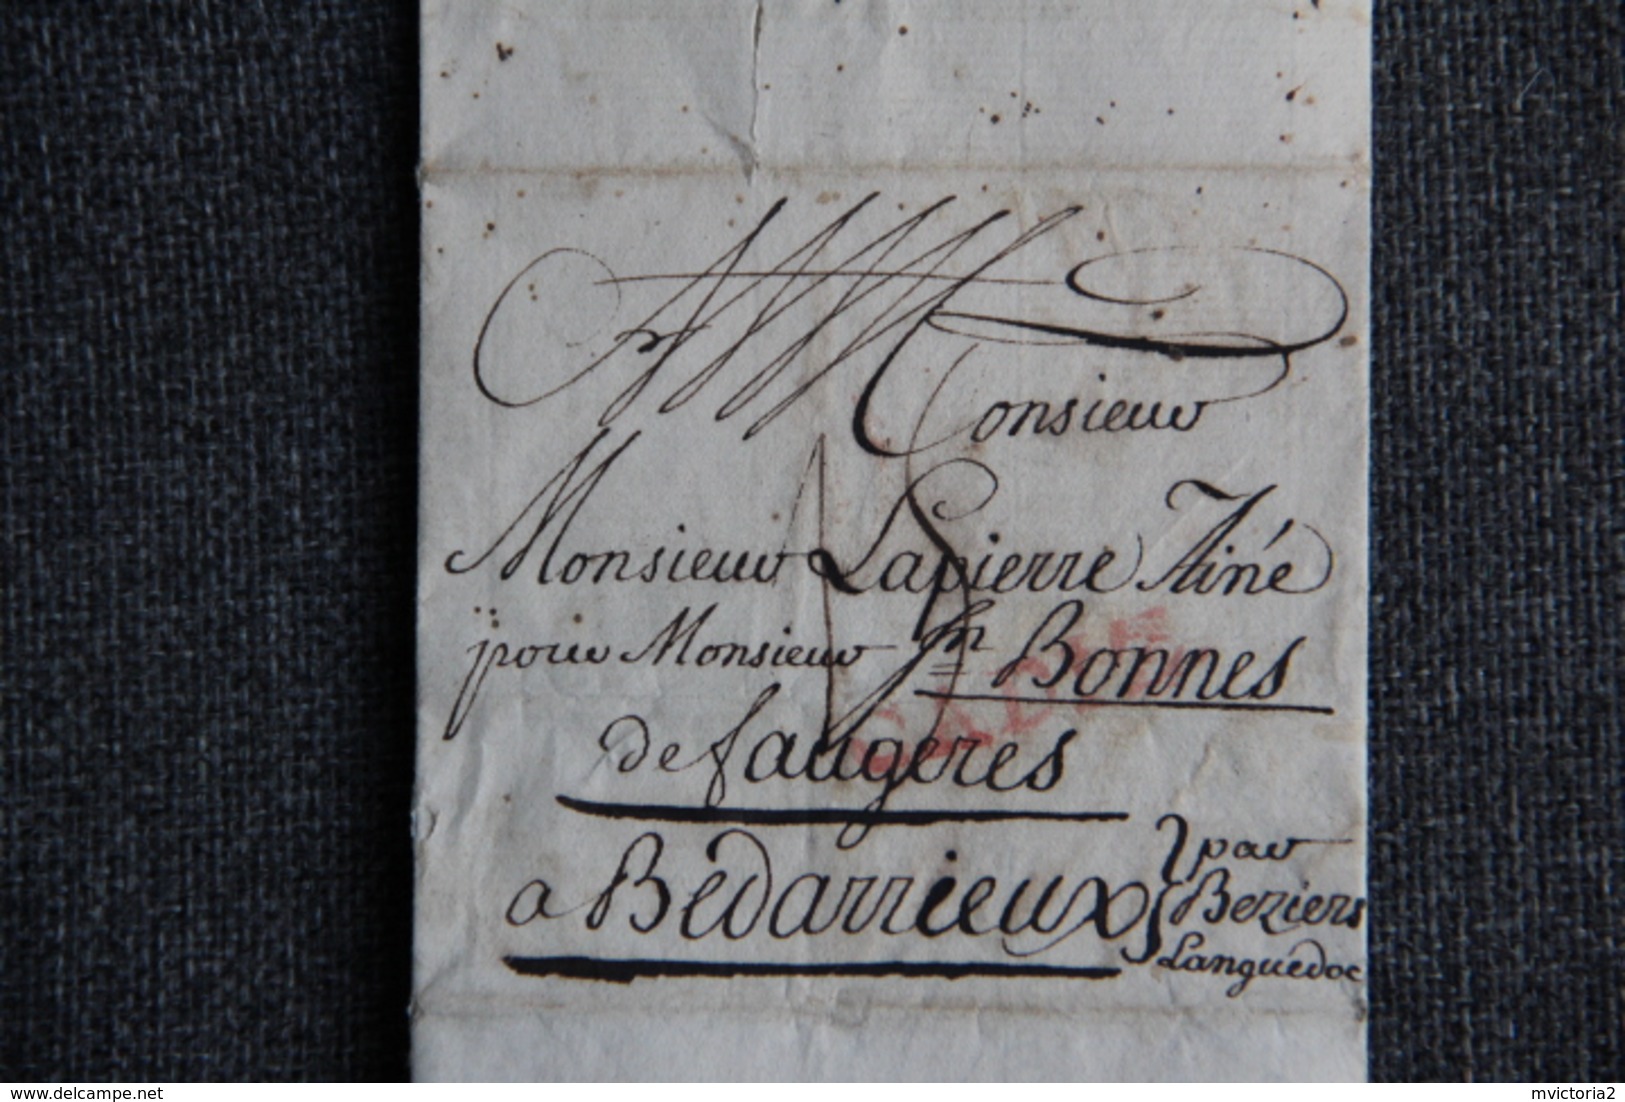 Monsieur
Monsieur Lapierre Ainé
pour Monsieur Jn Bonnes
de faugeres
a Bedarrieux par
Beziers
Languedoc
www.delcampe.net
mvictoria2